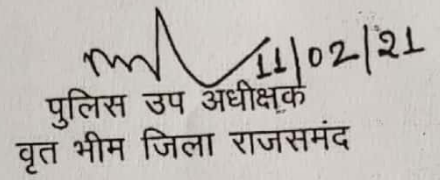 11/02/21
पुलिस उप अधीक्षक
वृत भीम जिला राजसमंद